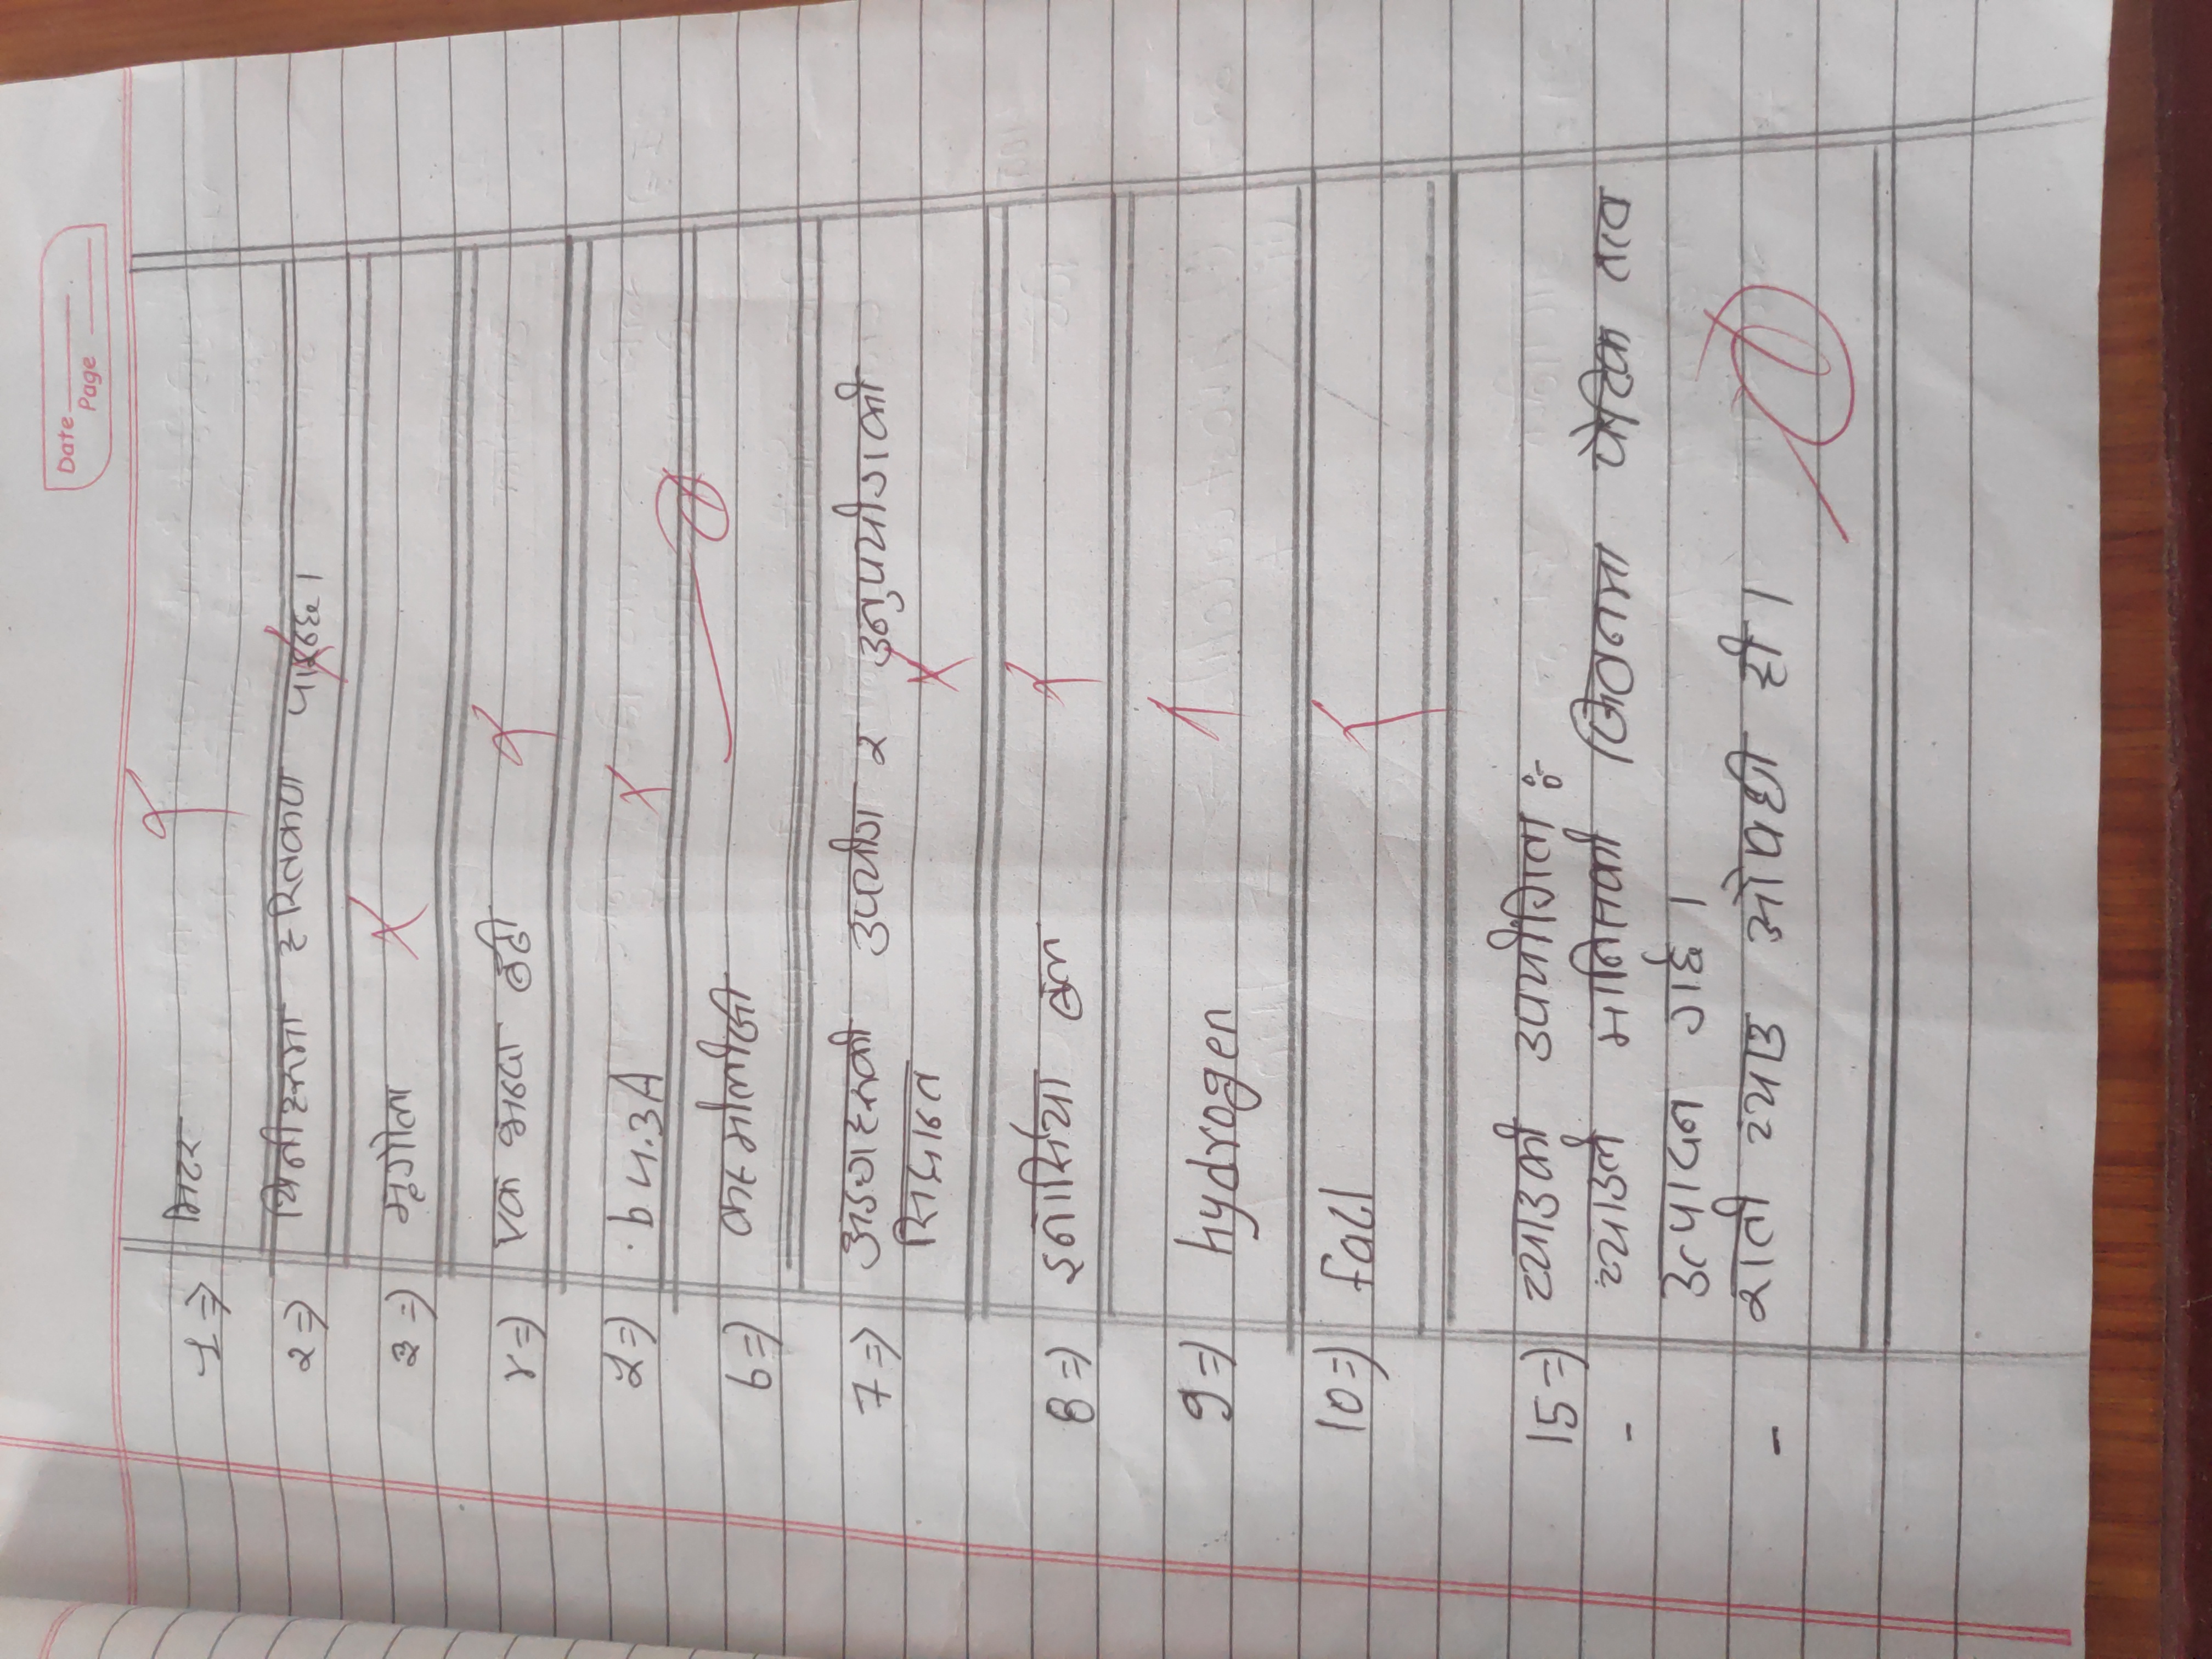 Date
Page
1⇒ मिटर
२⇒ यिनीहरुमा हरितकण पाइन्छ।
३⇒ मृगौला
४⇒ एक भन्दा बढी
५⇒ b 4.3A
6⇒ कस्मोलोजी
7⇒ अङ्गहरुको उपयोग र अनुपयोगको
सिद्धान्त
8⇒ इनर्सिया बल
9⇒ hydrogen
10⇒ fall
15⇒ च्याउको उपयोगिता :-
- च्याउले मानिसको जिवनमा पौष्टिक तत्व
उत्पादन गर्छ।
- रातो च्याउ औषधी हो।